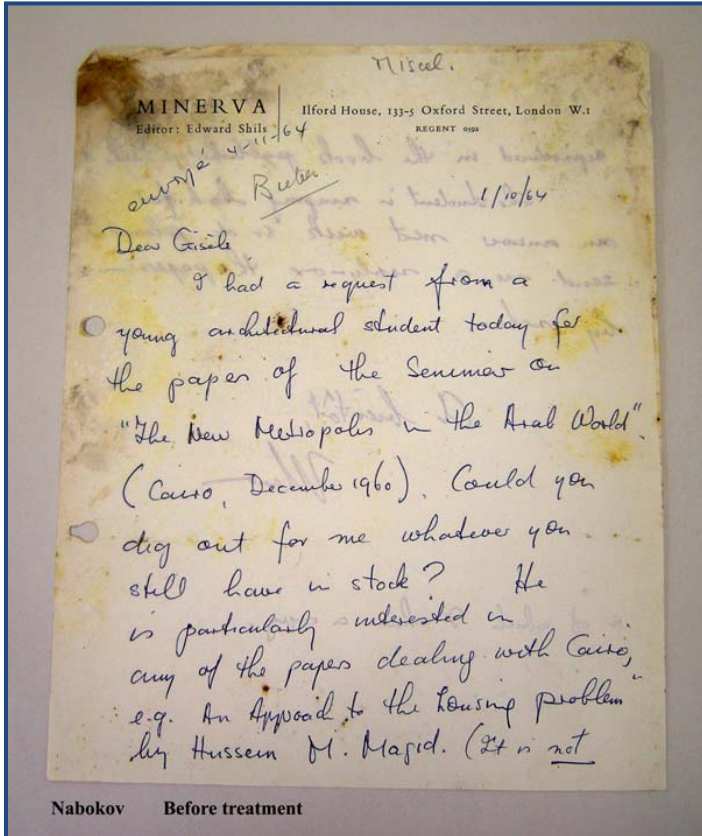 Miscel.
MINERVA
Editor: Edward Shils
Ilford House, 133-5 Oxford Street, London W.1
REGENT 0592
envoyé 4-11-64
1/10/64
Dear Gisèle
I had a request from a
young architectural student today for
the paper of the Seminar on
"The New Metropolis in the Arab World"
(Cairo, December 1960). Could you
dig out for me whatever you
still have in stock? He
is particularly interested in
any of the papers dealing with Cairo,
e.g. An Approach to the housing problem"
by Hussein M. Magid. (It is not
Nabokov Before treatment